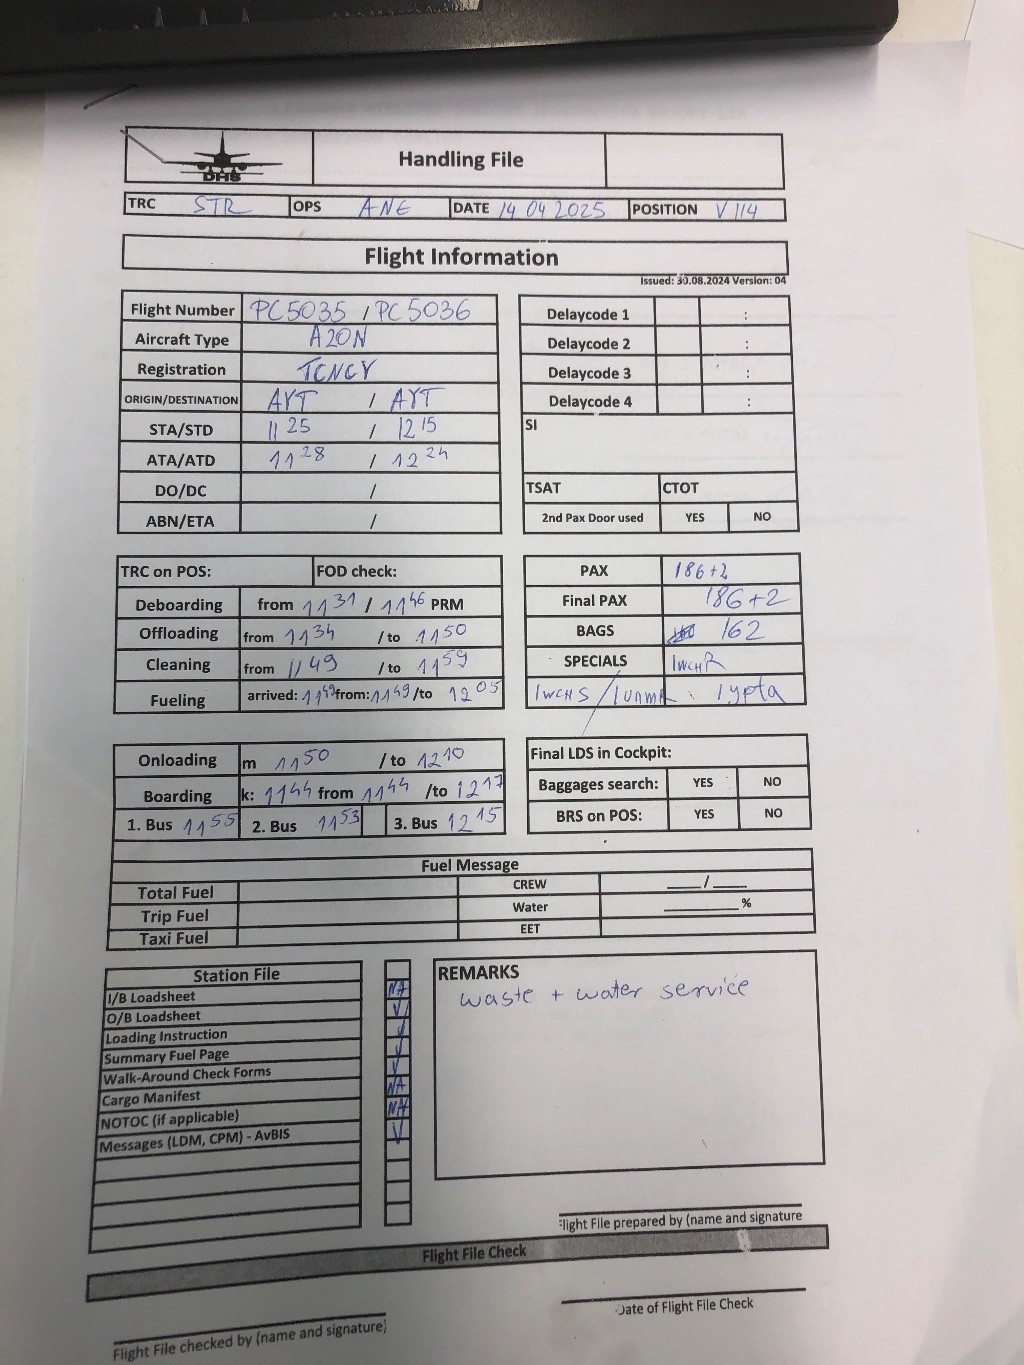 DHS
Handling File
TRC STR OPS ANE DATE 14 04 2025 POSITION V 114
Flight Information
Issued: 30.08.2024 Version: 04
Flight Number PC 5035 / PC 5036
Aircraft Type A20N
Registration TCNCY
ORIGIN/DESTINATION AYT / AYT
STA/STD 11 25 / 12 15
ATA/ATD 11 28 / 12 24
DO/DC /
ABN/ETA /
Delaycode 1 :
Delaycode 2 :
Delaycode 3 :
Delaycode 4 :
SI
TSAT CTOT
2nd Pax Door used YES NO
TRC on POS: FOD check:
Deboarding from 11 31 / 11 46 PRM
Offloading from 11 34 / to 11 50
Cleaning from 11 49 / to 11 59
Fueling arrived: 11 49 from: 11 49 /to 12 05
PAX 186+2
Final PAX 186+2
BAGS 162
SPECIALS 1WCHR
1WCHS /
Onloading m 11 50 / to 12 10
Boarding k: 11 44 from 11 44 /to 12 17
1. Bus 11 55 2. Bus 11 53 3. Bus 12 15
Final LDS in Cockpit:
Baggages search: YES NO
BRS on POS: YES NO
Fuel Message
Total Fuel CREW ___/___
Trip Fuel Water ______%
Taxi Fuel EET
Station File
I/B Loadsheet NA
O/B Loadsheet ✓
Loading Instruction ✓
Summary Fuel Page ✓
Walk-Around Check Forms ✓
Cargo Manifest NA
NOTOC (if applicable) NA
Messages (LDM, CPM) - AvBIS ✓
REMARKS
waste + water service
Flight File prepared by (name and signature
Flight File Check
Flight File checked by (name and signature)
Date of Flight File Check